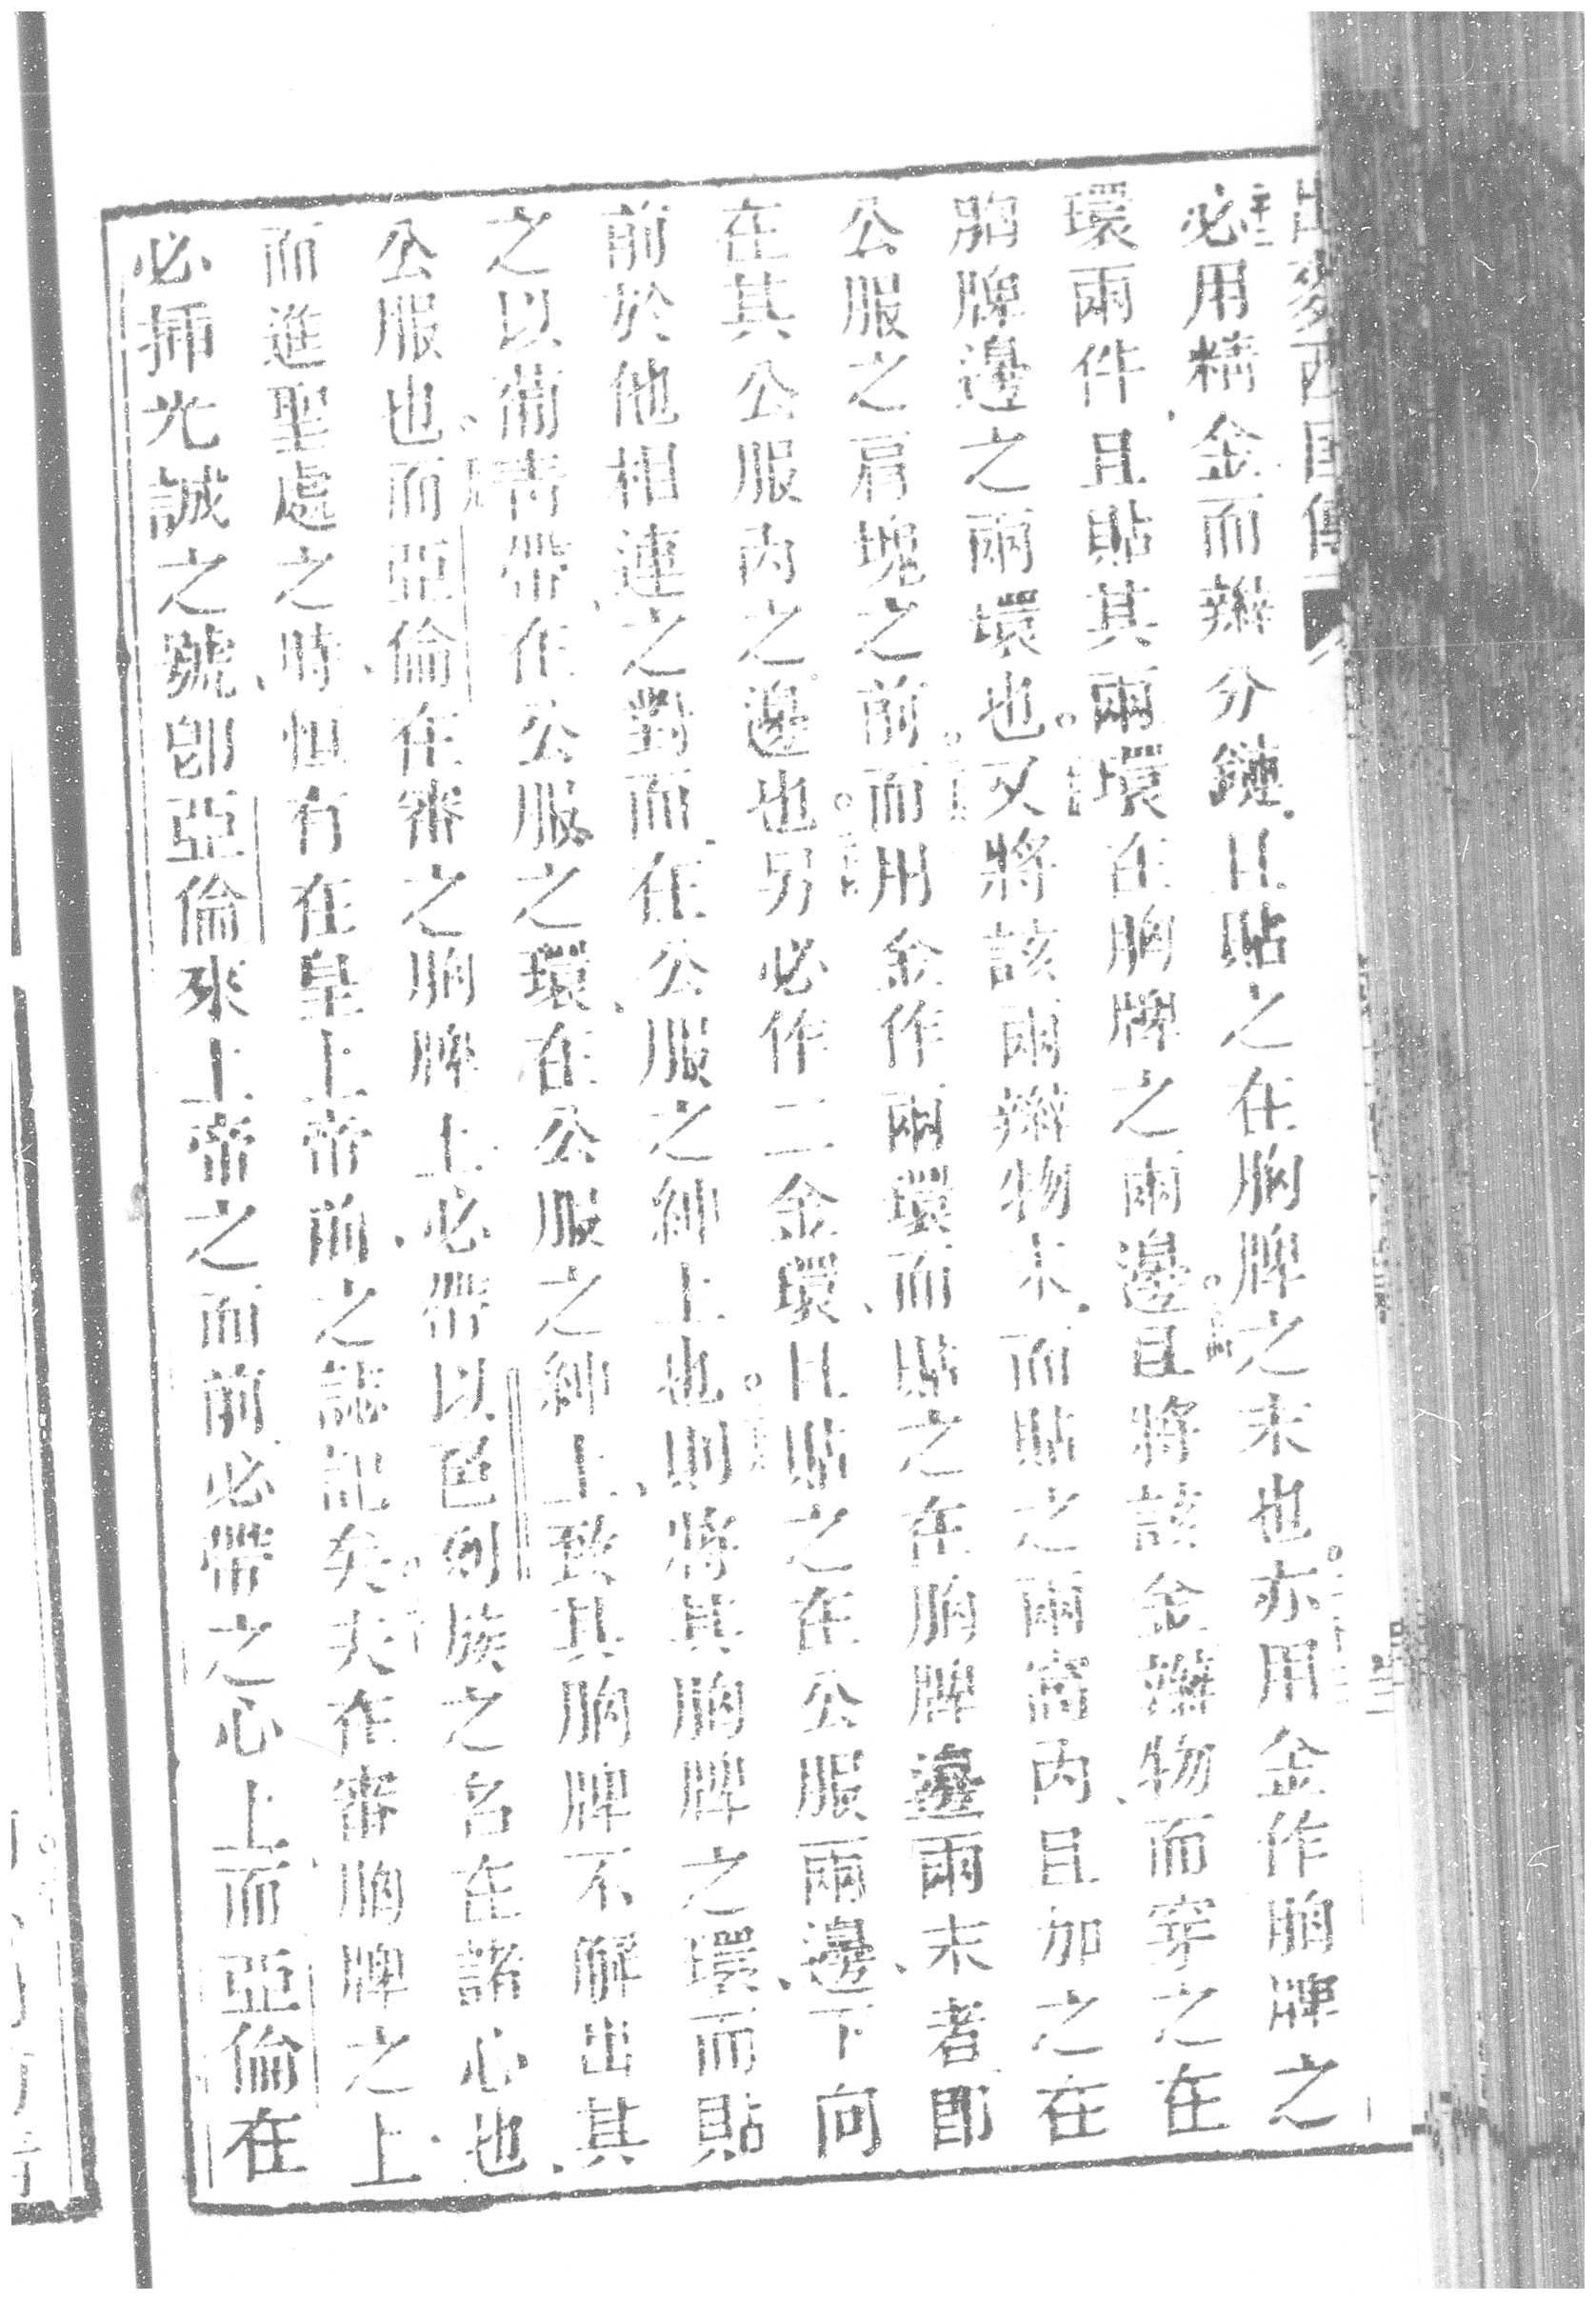 必用精金而辮分鏈且貼之在胸牌之末也亦用金作胸牌之
環兩件且貼其兩環在胸牌之兩邊且將該金辮物而穿之在
胸牌邊之兩環也又將該兩辮物末而貼之兩窩內且加之在
公服之肩塊之前而用金作兩環而貼之在胸牌邊兩末者即
在其公服內之邊也另必作二金環且貼之在公服兩邊下向
前於他相連之對而在公服之紳上也則將其胸牌之環而貼
之以葡青帶在公服之環在公服之紳上致其胸牌不解出其
公服也而亞倫在審之胸牌上必帶以色列族之名在諸心也
而進聖處之時恒有在皇上帝前之誌記矣夫在審胸牌之上
必插光誠之號即亞倫來上帝之面前必帶之心上而亞倫在